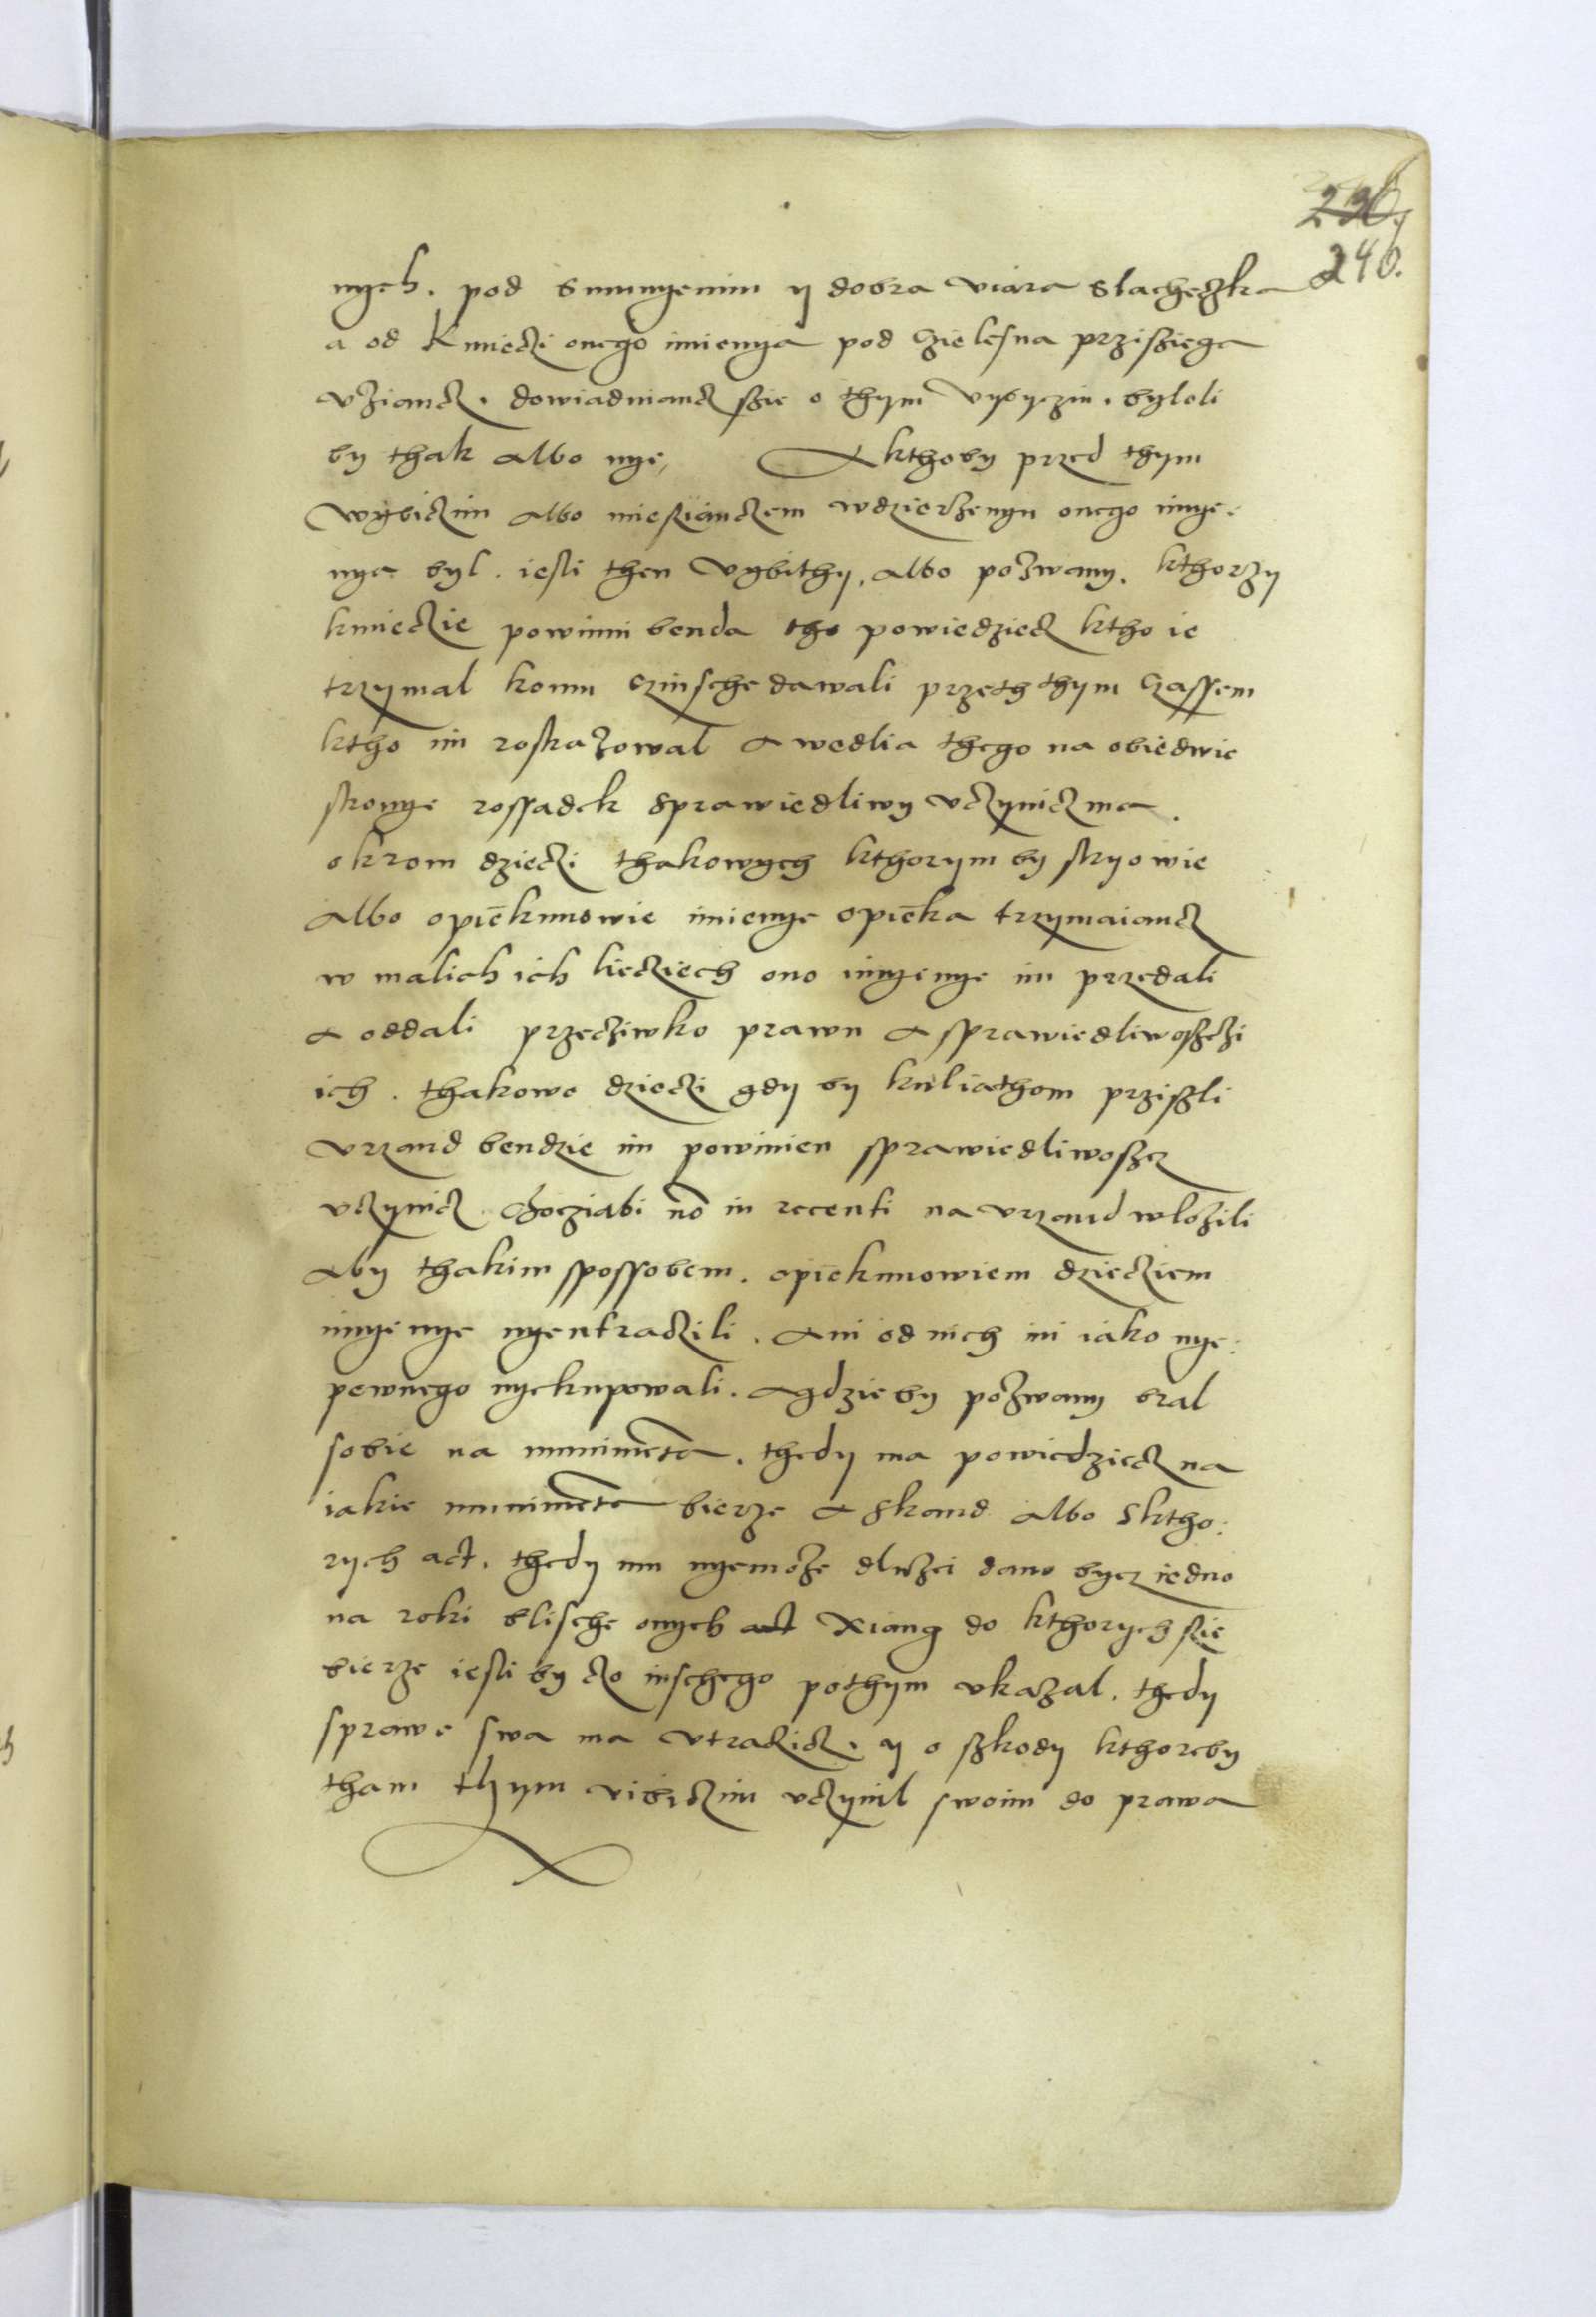 236,
240.
nych. pod Sumnyenim y dobra viara Slacheczka
a od Kmieczi onego imienya pod czielesna przisziega
vziancz. dowiaduiancz szie o thym vybyczin. byloli
by thak albo nye, A kthoby przed thym
wybiczim albo miesziączem wdzierżenyu onego imye-
nya byl. iesli then vybithy, albo pozwany. kthorzy
kmieczie powinni benda tho powiedziecz ktho ie
trzymal komu czinsche dawali przeth thym czassem
ktho im roskazowal a wedlia thego na obiedwie
stronye rossadek sprawiedliwy vczynicz ma.
okrom dzieczi thakowych kthorym by stryowie
albo opiekunowie imienye opieka trzymaiancz
w malich ich lieciech ono imyenye im przedali
a oddali przecziwko prawu a sprawiedliwoszczi
ich. thakowe dzieczi gdy by kuliathom prziszli
vrzand bendzie im powinien sprawiedliwoszcz
vczynicz choziabi nō in recenti na vrzand wlożili
aby thakim spossobem. opiekunowiem dziecziem
imyenye nyeutraczili. ani od nich ini iako nye:
pewnego nyekupowali. a gdzie by pozwany bral
sobie na munimēta. thedy ma powiedziecz na
iakie munimēta bierze a skand albo sktho:
rych act. thedy mu nyemoże dluzei dano bycz iedno
na roki blische onych act xiang do kthorych sie
bierze iesli by czo inschego pothym vkazal. thedy
sprawe swa ma vtraczicz. y o szkody kthoreby
tham thym vibiczim vczynil swoim do prawa